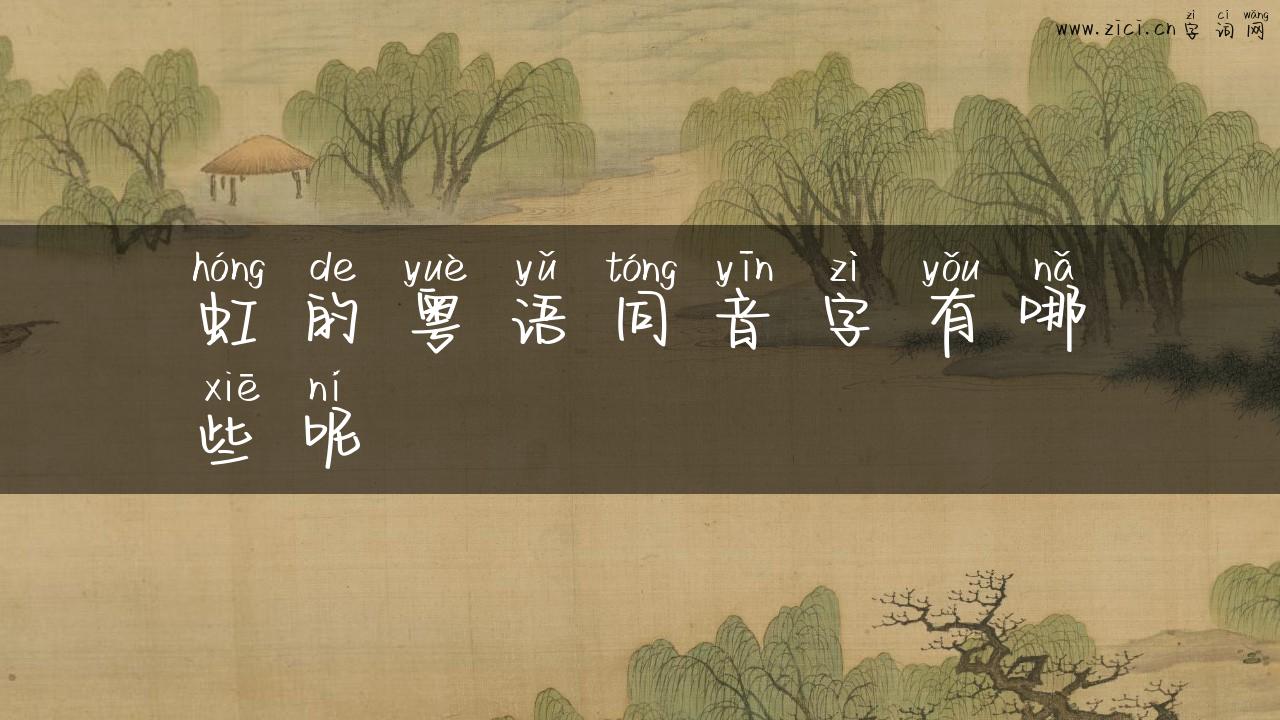 zì cí wǎng
www.zici.cn 字词网
hóng de yuè yǔ tóng yīn zì yǒu nǎ
虹的粤语同音字有哪
xiē ní
些呢